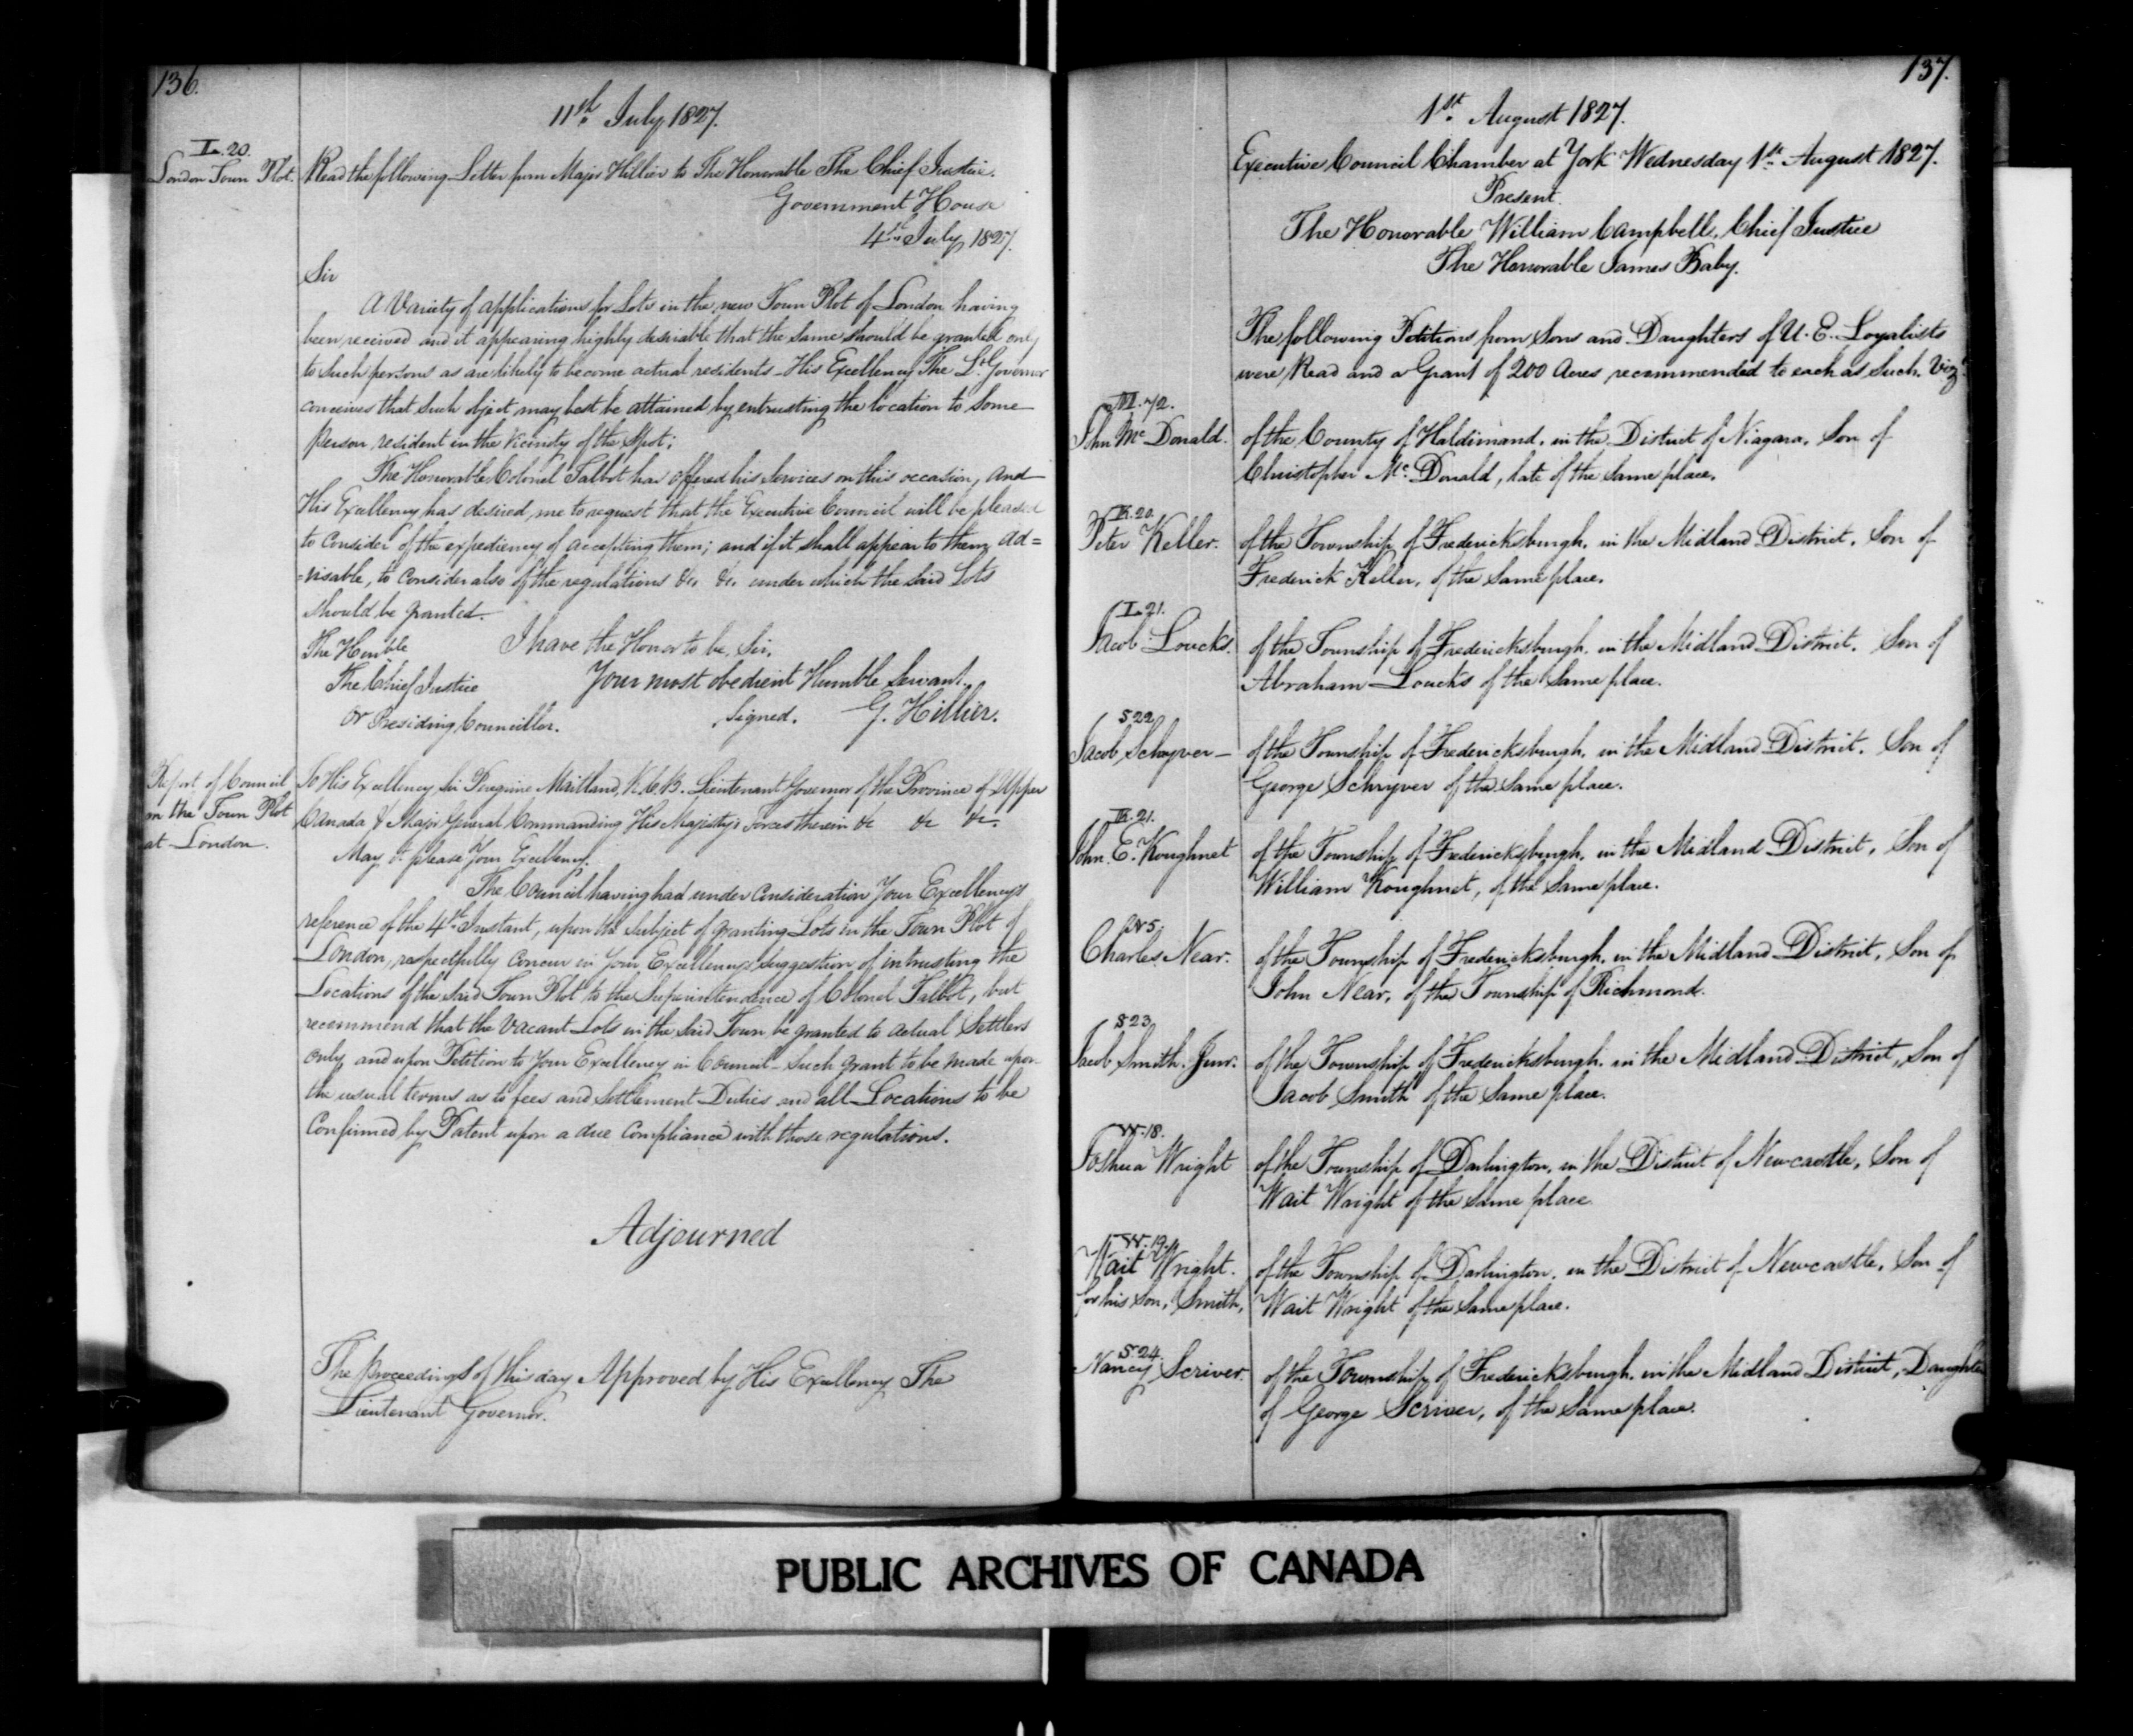 136.
11th. July 1827.
L. 20.
London Town Plot.
Read the following Letter from Major Hillier to The Honorable The Chief Justice.
Government House
4th. July 1827.
Sir
A Variety of applications for Lots in the new Town Plot of London having
been received and it appearing highly desirable that the same should be granted only
to such persons as are likely to become actual residents - His Excellency The Lt. Governor
conceives that such object may best be attained by entrusting the location to some
person resident in the Vicinity of the Spot;
The Honorable Colonel Talbot has offered his services on this occasion, and
His Excellency has desired me to request that the Executive Council will be pleased
to consider of the expediency of accepting them; and if it shall appear to them ad=
=visable, to consider also of the regulations &c. &c. under which the said Lots
should be granted.
The Honble
I have the Honor to be, Sir,
The Chief Justice
Your most obedient Humble Servant.
Or Presiding Councillor.
Signed. G. Hillier.
Report of Council
on the Town Plot
at London.
To His Excellency Sir Peregrine Maitland, K.C.B. Lieutenant Governor of the Province of Upper
Canada & Major General Commanding His Majesty's Forces therein &c &c &c.
May it please Your Excellency.
The Council having had under consideration Your Excellency's
reference of the 4th. Instant, upon the subject of granting Lots in the Town Plot of
London, respectfully concur in Your Excellency's suggestion of intrusting the
Locations of the said Town Plot to the Superintendence of Colonel Talbot, but
recommend that the vacant Lots in the said Town be granted to actual Settlers
only and upon Petition to Your Excellency in Council - Such grant to be made upon
the usual terms as to fees and Settlement Duties and all Locations to be
Confirmed by Patent upon a due compliance with those regulations.
Adjourned
The Proceedings of this day Approved by His Excellency The
Lieutenant Governor.
137.
1st. August 1827.
Executive Council Chamber at York Wednesday 1st. August 1827.
Present.
The Honorable William Campbell, Chief Justice
The Honorable James Baby.
The following Petitions from Sons and Daughters of U. E. Loyalists
were Read and a Grant of 200 Acres recommended to each as such. Vizt.
M. 72.
John Mc Donald. of the County of Haldimand, in the District of Niagara, Son of
Christopher Mc. Donald, late of the same place.
K. 20.
Peter Keller. of the Township of Fredericksburgh, in the Midland District, Son of
Frederick Keller, of the same place.
L. 21.
Jacob Loucks. of the Township of Fredericksburgh, in the Midland District. Son of
Abraham Loucks of the same place.
S 22
Jacob Schryver - of the Township of Fredericksburgh, in the Midland District. Son of
George Schryver of the same place.
K. 21.
John. E. Koughnet of the Township of Fredericksburgh, in the Midland District, Son of
William Koughnet, of the same place.
N 5.
Charles Near. of the Township of Fredericksburgh, in the Midland District, Son of
John Near, of the Township of Richmond.
S 23
Jacob Smith. Junr. of the Township of Fredericksburgh, in the Midland District, Son of
Jacob Smith of the same place.
W. 18.
Joshua Wright of the Township of Darlington, in the District of Newcastle, Son of
Wait Wright of the same place.
W. 19.
Wait Wright. of the Township of Darlington, in the District of Newcastle, Son of
for his Son, Smith, Wait Wright of the same place.
S 24.
Nancy Scriver. of the Township of Fredericksburgh, in the Midland District, Daughter
of George Scriver, of the same place.
PUBLIC ARCHIVES OF CANADA